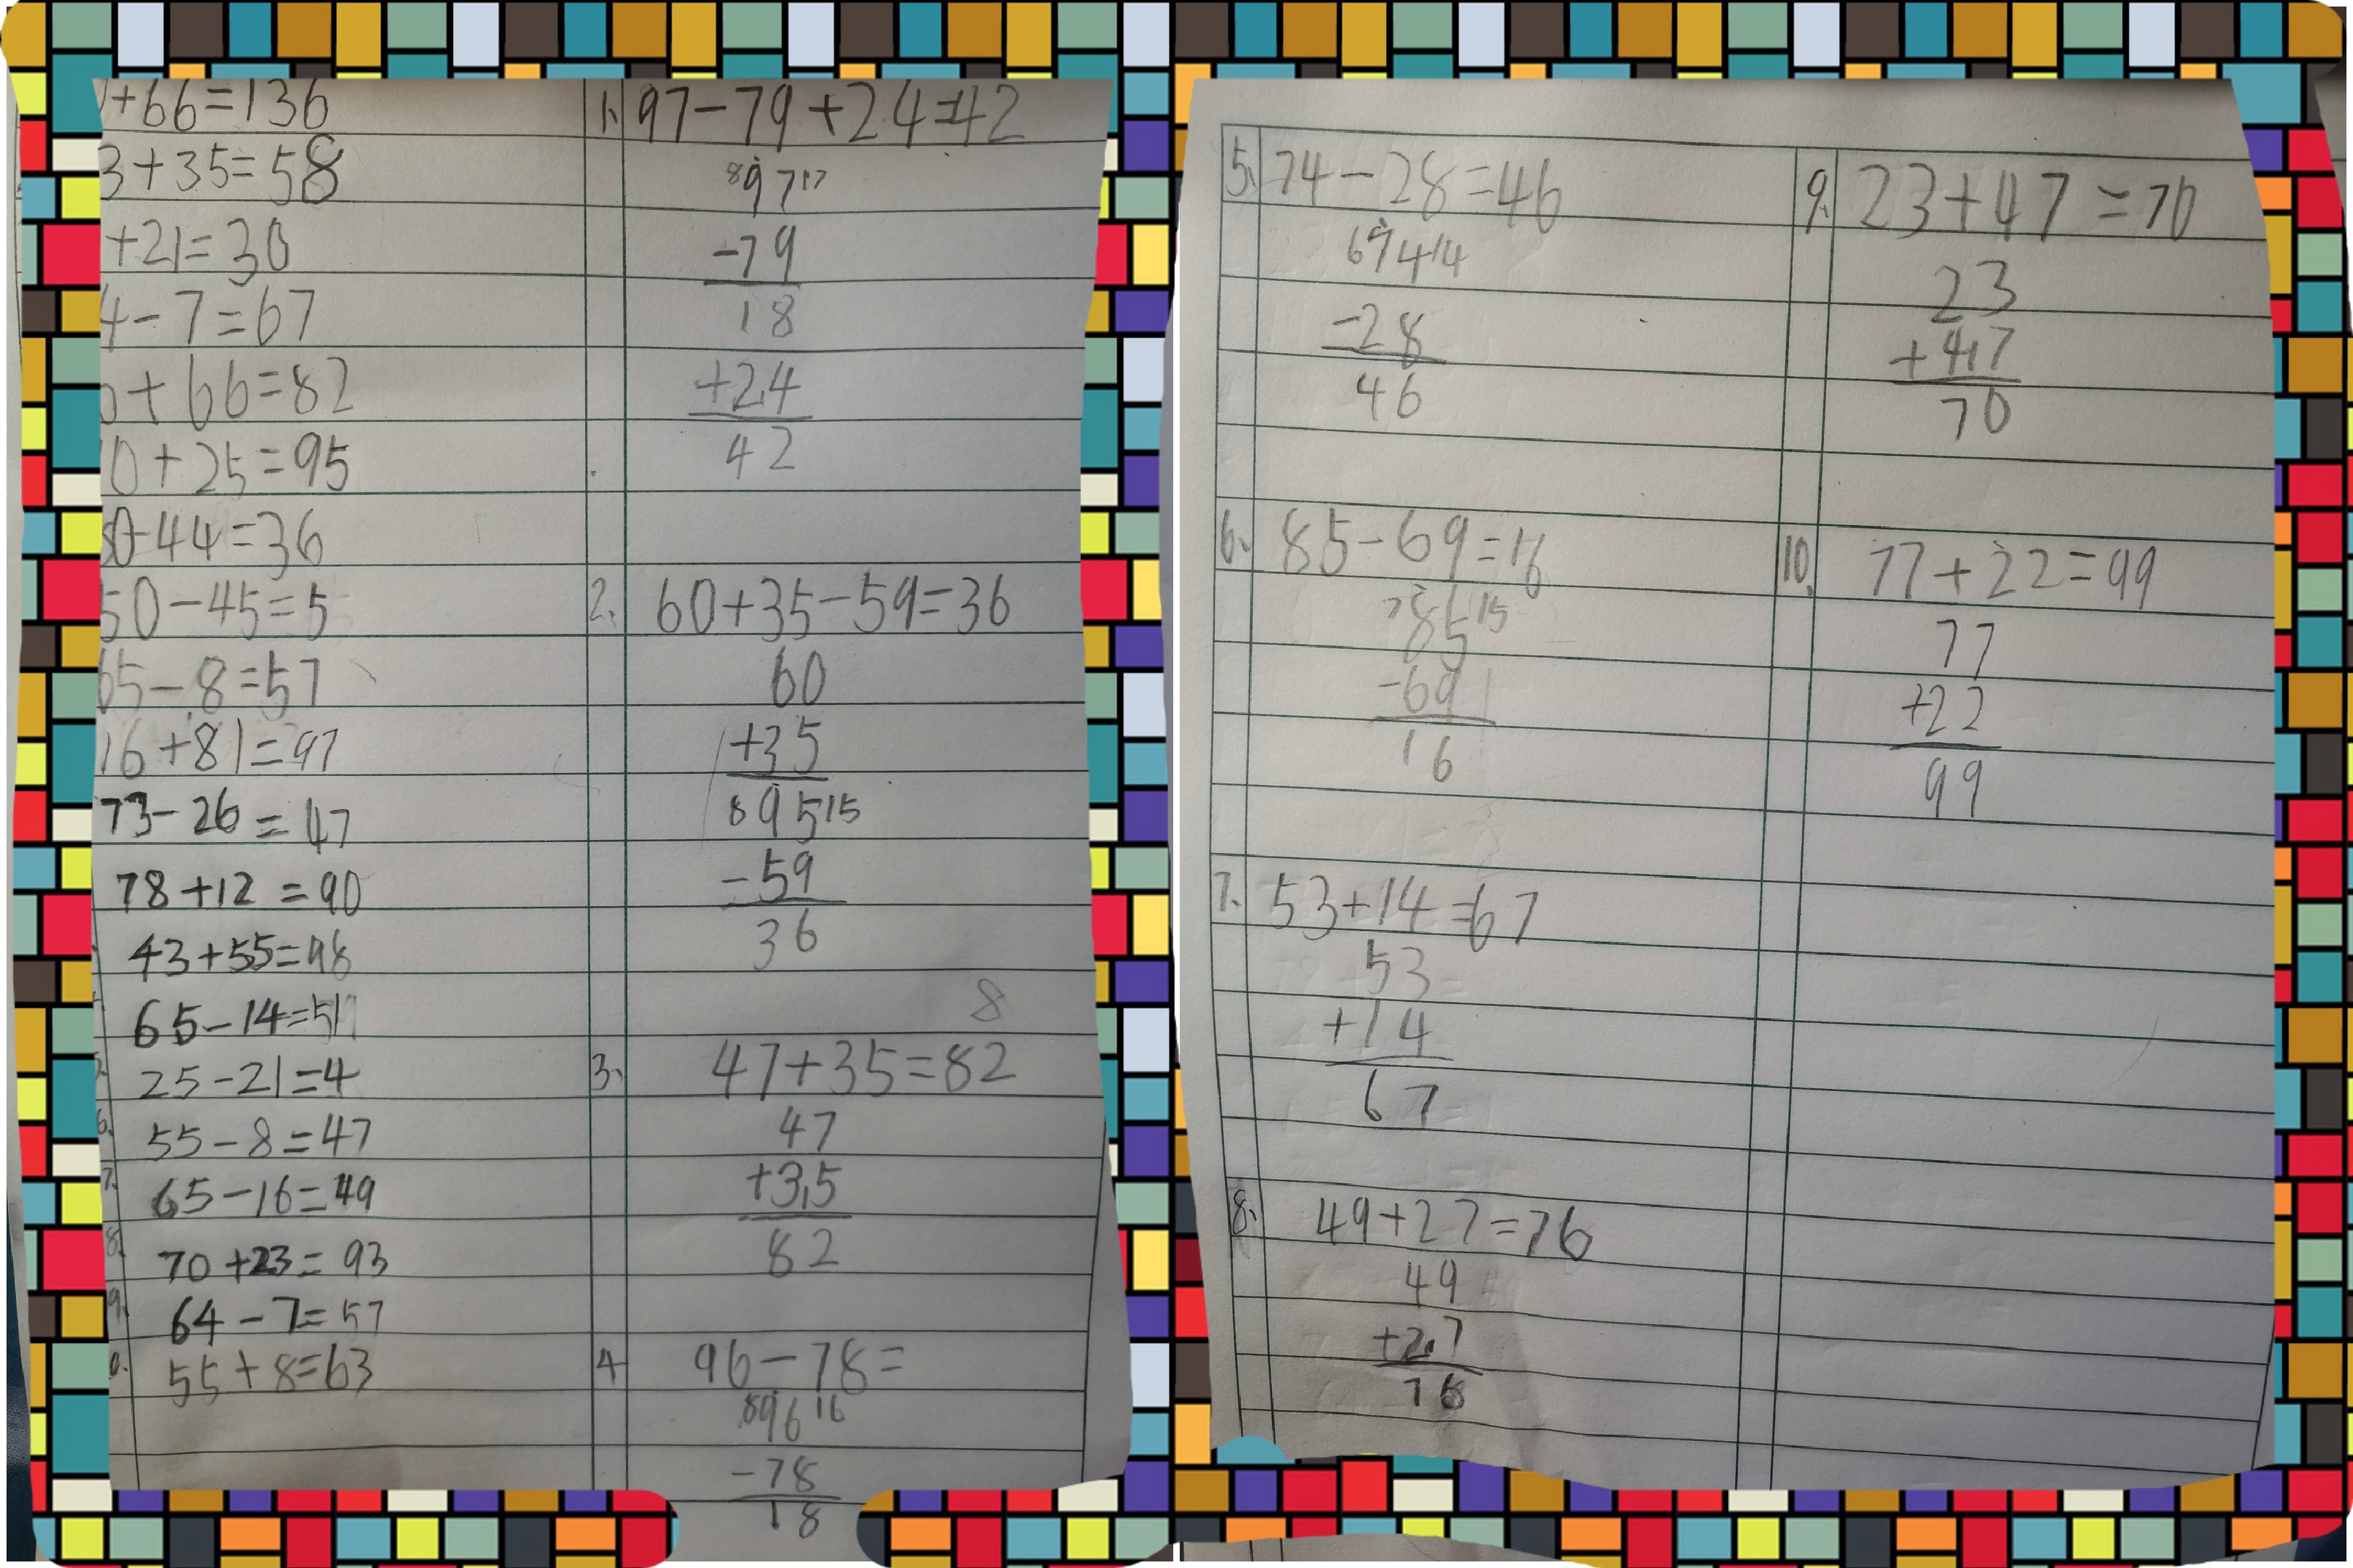 +66=136
3+35=58
+21=30
4-7=67
+66=82
0+25=95
0-44=36
50-45=5
65-8=57
16+81=97
73-26=47
78+12=90
43+55=98
65-14=51
25-21=4
6. 55-8=47
7. 65-16=49
8. 70+23=93
9. 64-7=57
0. 55+8=63
1. 97-79+24=42
8 97 17
-79
18
+24
42
2. 60+35-59=36
60
+35
8 95 15
-59
36
8
3. 47+35=82
47
+3,5
82
4 96-78=
8 96 16
-78
18
5. 74-28=46
6 74 14
-28
46
6. 85-69=16
7 85 15
-69
16
7. 53+14=67
53
+14
67
8. 49+27=76
49
+2,7
9. 23+47=70
23
+4,7
70
10. 77+22=99
77
+22
99